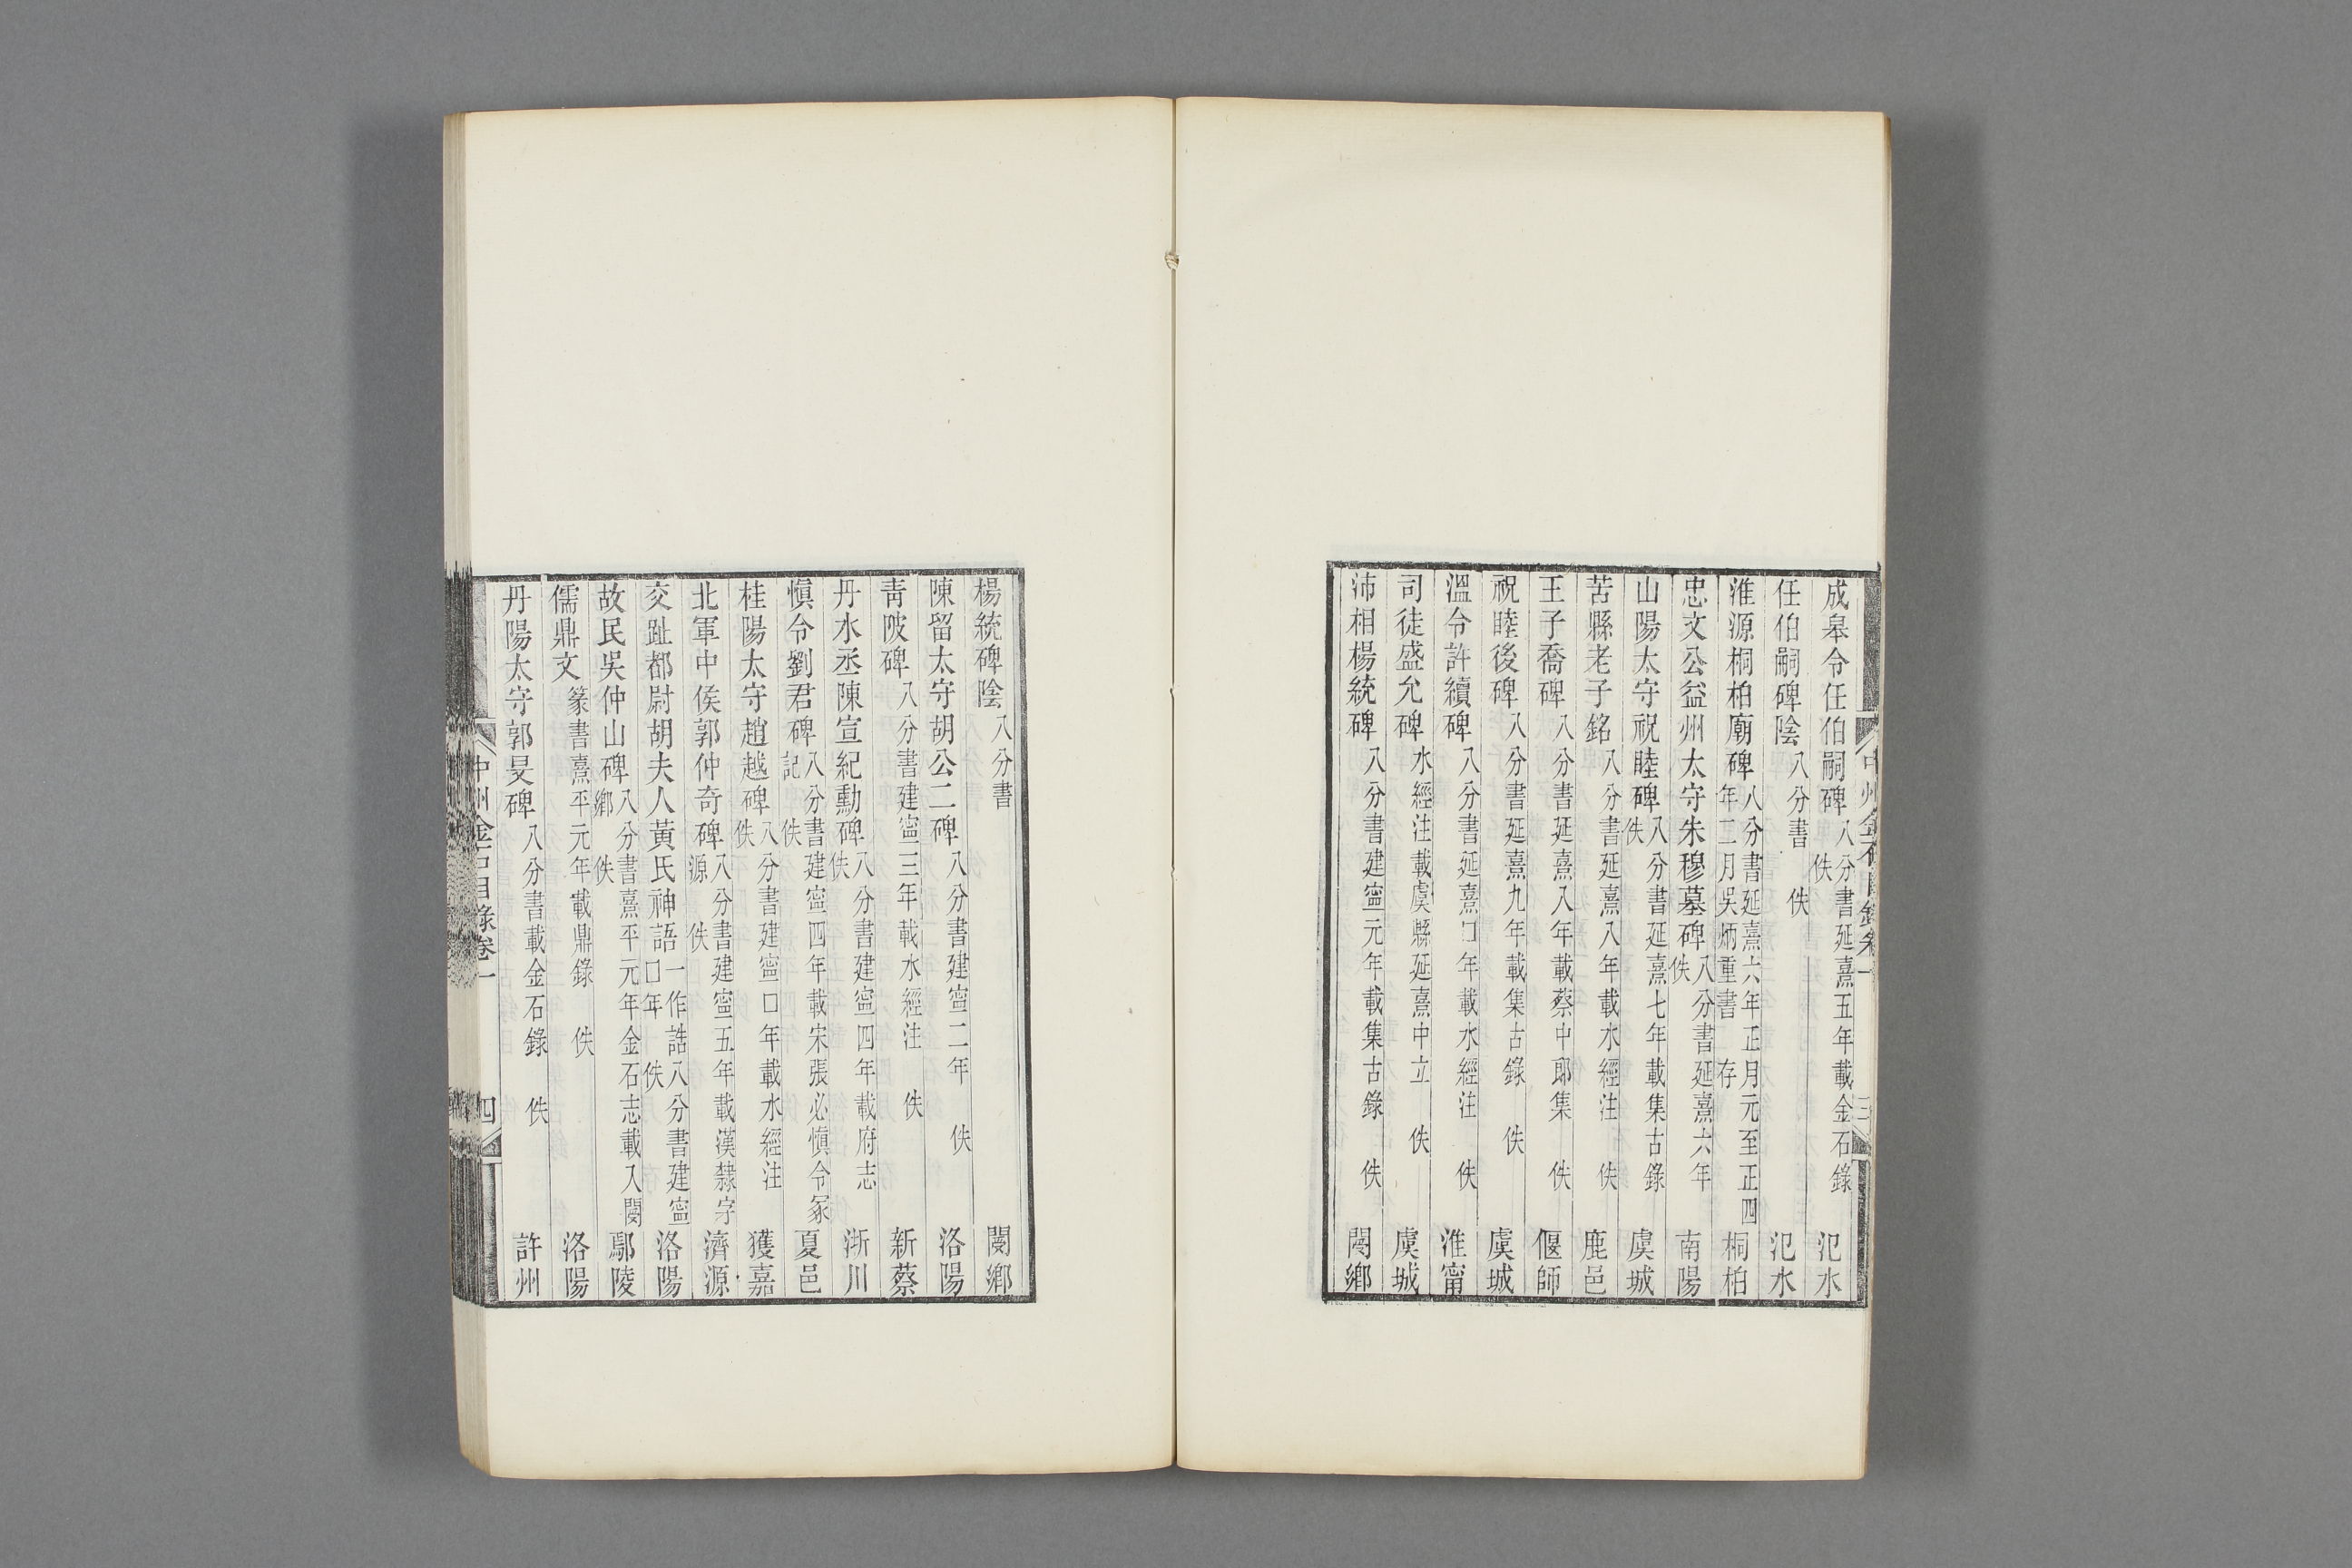 成皋令任伯嗣碑 八分書延熹五年載金石錄 佚 汜水
任伯嗣碑陰 八分書 佚 汜水
淮源桐柏廟碑 八分書延熹六年正月元至正四年二月吳炳重書 存 桐柏
忠文公益州太守朱穆墓碑 八分書延熹六年 佚 南陽
山陽太守祝睦碑 八分書延熹七年載集古錄 佚 虞城
苦縣老子銘 八分書延熹八年載水經注 佚 鹿邑
王子喬碑 八分書延熹八年載蔡中郎集 佚 偃師
祝睦後碑 八分書延熹九年載集古錄 佚 虞城
溫令許續碑 八分書延熹口年載水經注 佚 淮甯
司徒盛允碑 水經注載虞縣延熹中立 佚 虞城
沛相楊統碑 八分書建寍元年載集古錄 佚 閿鄉
楊統碑陰 八分書 閿鄉
陳留太守胡公二碑 八分書建寍二年 佚 洛陽
青陂碑 八分書建寍三年載水經注 佚 新蔡
丹水丞陳宣紀勳碑 八分書建寍四年載府志 佚 淅川
慎令劉君碑 八分書建寍四年載宋張必慎令冢記 佚 夏邑
桂陽太守趙越碑 八分書建寍口年載水經注 佚 獲嘉
北軍中侯郭仲奇碑 八分書建寍五年載漢隸字源 佚 濟源
交趾都尉胡夫人黃氏神誥 一作誥八分書建寍口年 佚 洛陽
故民吳仲山碑 八分書熹平元年金石志載入閿鄉 佚 鄢陵
儒鼎文 篆書熹平元年載鼎錄 佚 洛陽
丹陽太守郭旻碑 八分書載金石錄 佚 許州
中州金石目錄卷一 四